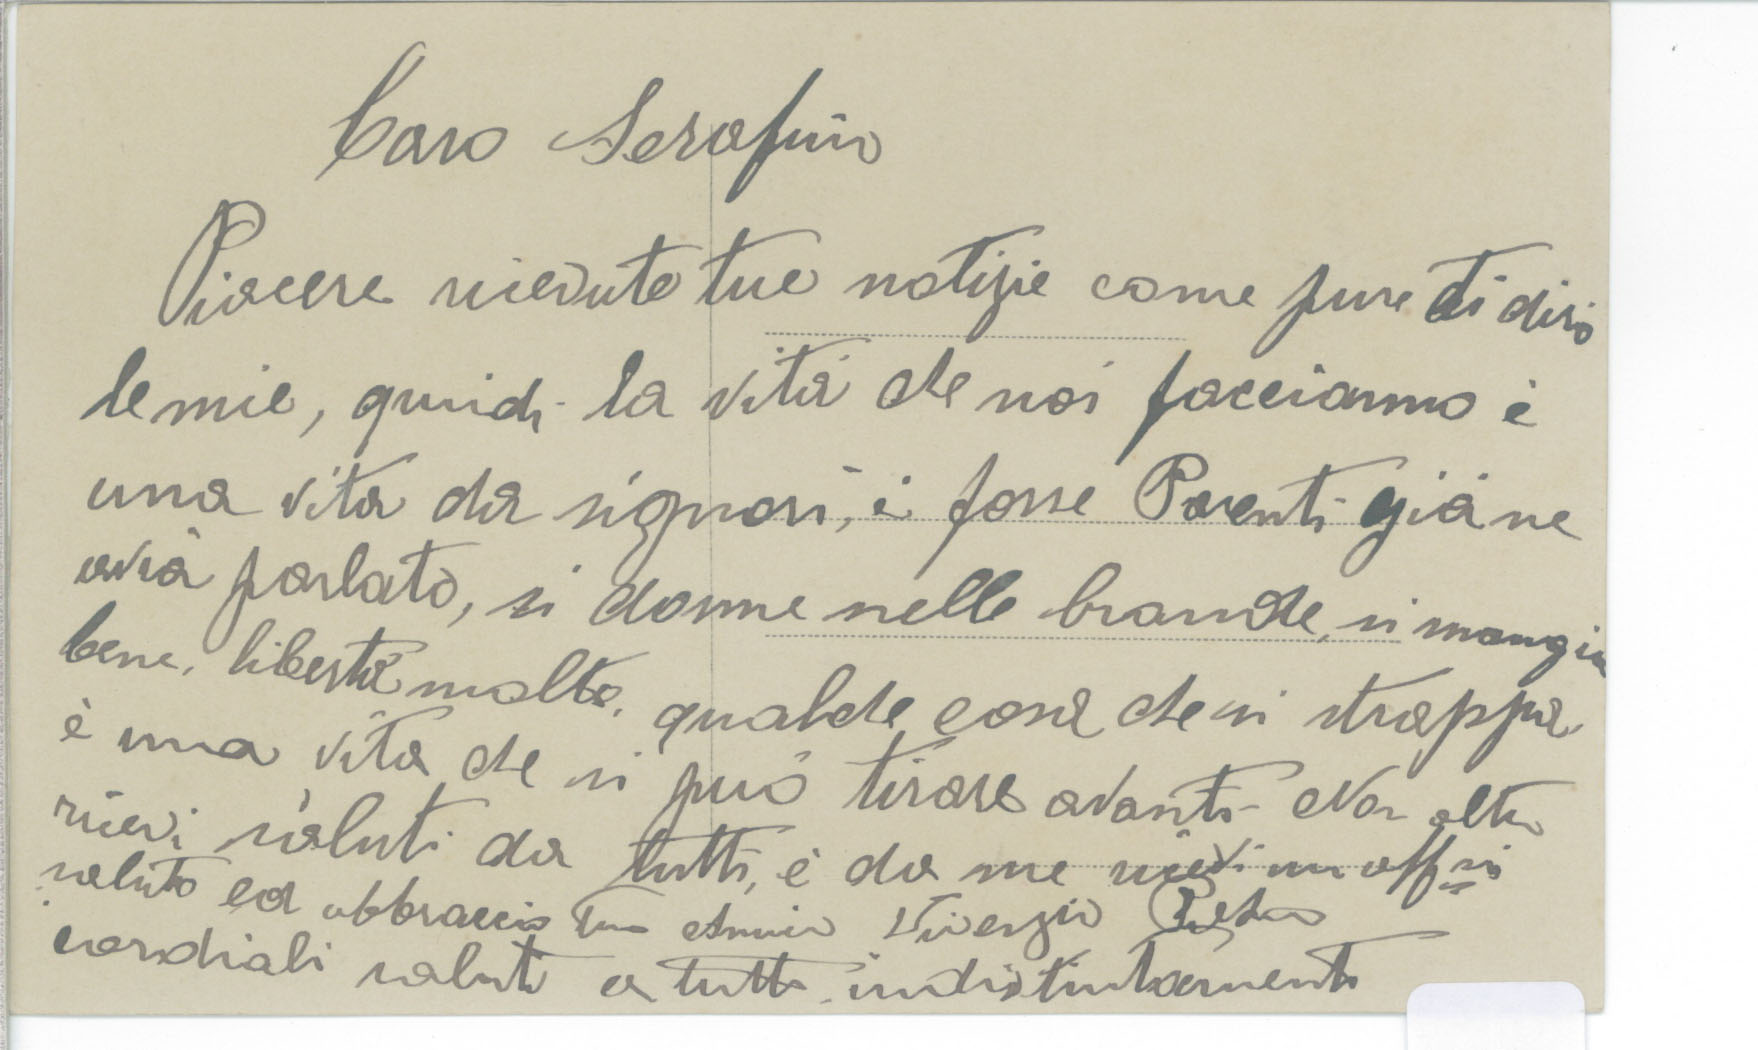 Caro Serafino
Piacere ricevuto tue notizie come pure di dirò
le mie, quindi la vita che noi facciamo è
una vita da signori, è forse Parenti già ne
avrà parlato, si dorme nelle brande, si mangia
bene, libertà molta, qualche cosa che si strappa
è una vita che si può tirare avanti. Non altro
ricevi saluti da tutti, è da me ricevi un aff.si
saluto ed abbraccio tuo Amico Vicenzio
cordiali saluti a tutti indistintamente